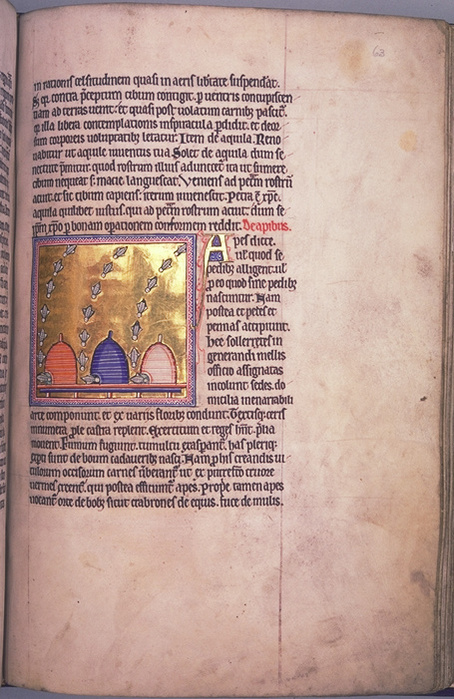 in rationis celsitudinem quasi in aeris libtate suspendat.
S; qr contra pceptum cibum contigit. p ventris concupiscen
tiam ad terras uenit. et quasi post uolatum carnib; pascit.
qr illa libera contemplationis inspiracula pdidit. et deor
sum corporeis uoluptatib; letatur. Item de aquila. Reno
uabitur ut aquile iuuentus tua. Solet de aquila dum se
nectute pmitur. quod rostrum illius aduncet ita ut sumere
cibum nequeat. s; macie languescat. Veniens ad petm rostru
acuit. et sic cibum capiens. iterum iuuenescit. Petra e xpc.
aquila quilibet iustus. qui ad petm rostrum acuit. dum se
ipm xpo p bonam opationem conformem reddit. De apibus.
Apes dicte.
uel quod se
pedib; alligent. ul
p eo quod sine pedib;
nascuntur. Nam
postea et pedes et
pennas accipiunt.
hee sollertes in
generandi mellis
officio assignatas
incolunt sedes. do
micilia inenarrabili
arte componunt. et ex uariis florib; condunt. Textisq; ceris
innumera ple castra replent. Exercitum et reges hnt. plia
mouent. Fumum fugiunt. tumultu exaspant. has pleriq;
expti sunt de boum cadauerib; nasci. Nam p his creandis ui
tulorum occisorum carnes uberant. ut ex putrefco cruore
uermes creent. qui postea efficiunt apes. Prope tamen apes
uocant orte de bob; sicut crabrones de equis. fuce de mulis.